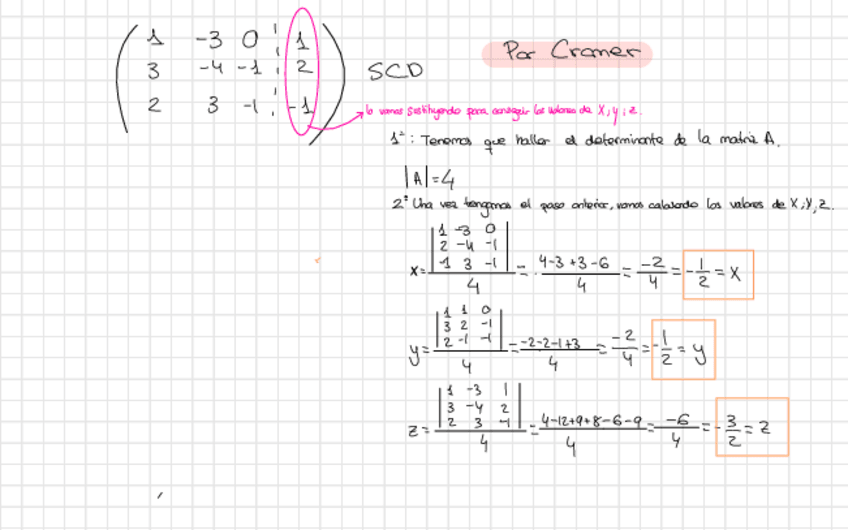 Por Cramer
1 -3 0 1
3 -4 -1 2
2 3 -1 -1
SCD
lo vamos sustituyendo para conseguir los valores de x, y, z.
1º: Tenemos que hallar el determinante de la matriz A.
|A|=4
2º Una vez tengamos el paso anterior, vamos calculando los valores de x, y, z.
1 -3 0
2 -4 -1
-1 3 -1
x= /4 = 4-3+3-6/4 = -2/4 = -1/2 = x
1 1 0
3 2 -1
2 -1 -1
y= /4 = -2-2-1+3/4 = -2/4 = -1/2 = y
1 -3 1
3 -4 2
2 3 -1
z= /4 = 4-12+9+8-6-9/4 = -6/4 = -3/2 = z